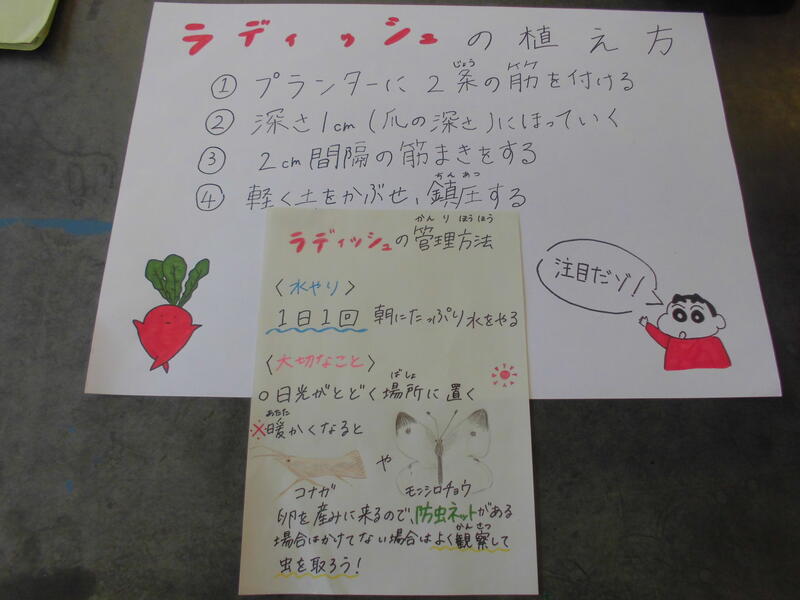 ラディッシュの植え方
① プランターに2条の筋を付ける
じょう
② 深さ1cm(爪の深さ)にほっていく
③ 2cm間隔の筋まきをする
④ 軽く土をかぶせ、鎮圧する
ちんあつ
注目だゾ!
ラディッシュの管理方法
かんりほうほう
〈水やり〉
1日1回 朝にたっぷり水をやる
〈大切なこと〉
○日光がとどく場所に置く
ばしょ
※暖かくなると
あたた
や
コナガ
モンシロチョウ
卵を産みに来るので、防虫ネットがある
場合はかけてない場合はよく観察して
かんさつ
虫を取ろう!